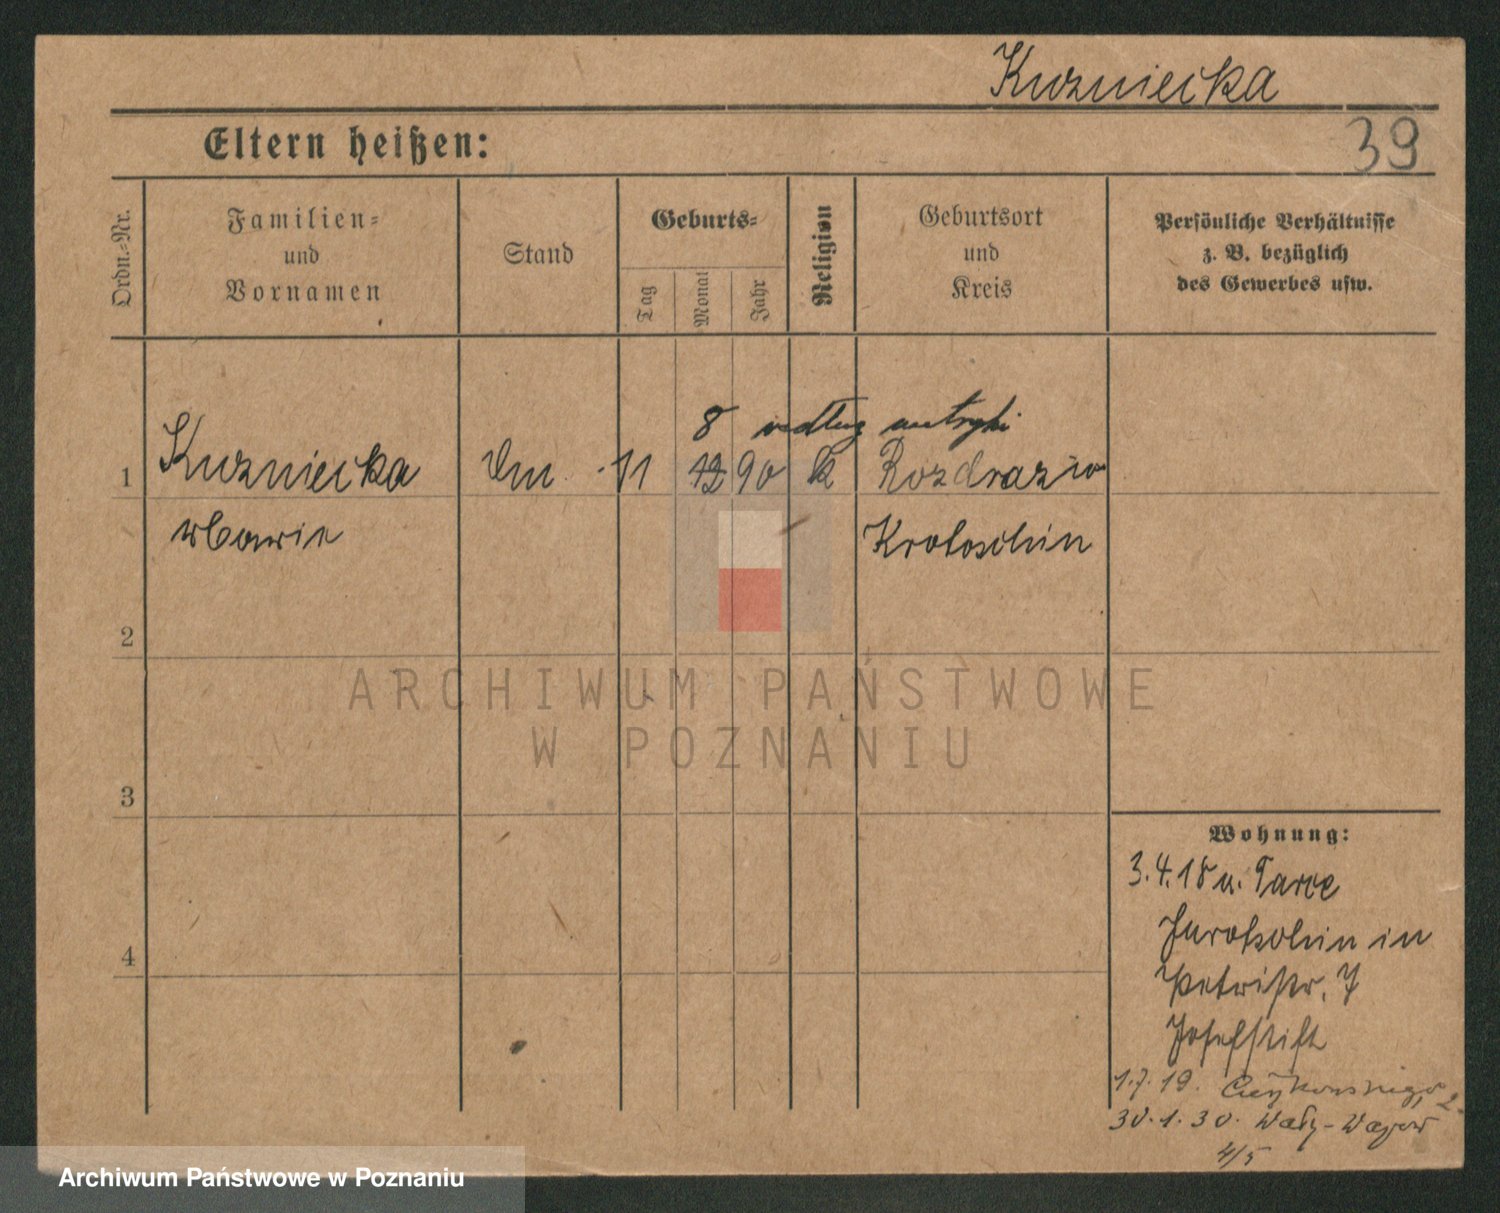 Kuzniecka
39
Eltern heißen:
Ordn.-Nr.
Familien-
und
Vornamen
Stand
Geburts-
Tag
Monat
Jahr
Religion
Geburtsort
und
Kreis
Persönliche Verhältnisse
z. B. bezüglich
des Gewerbes usw.
8 według metryki
1 Kuzniecka 11 12 90 k Rozdrazew
Marie Krotoschin
2
ARCHIWUM PAŃSTWOWE
W POZNANIU
3
Wohnung:
3.4.18 u. Taree
4
in
Petristr. 7
Josefstift
1.7.19.
30.1.30. Wały-
4/5
Archiwum Państwowe w Poznaniu